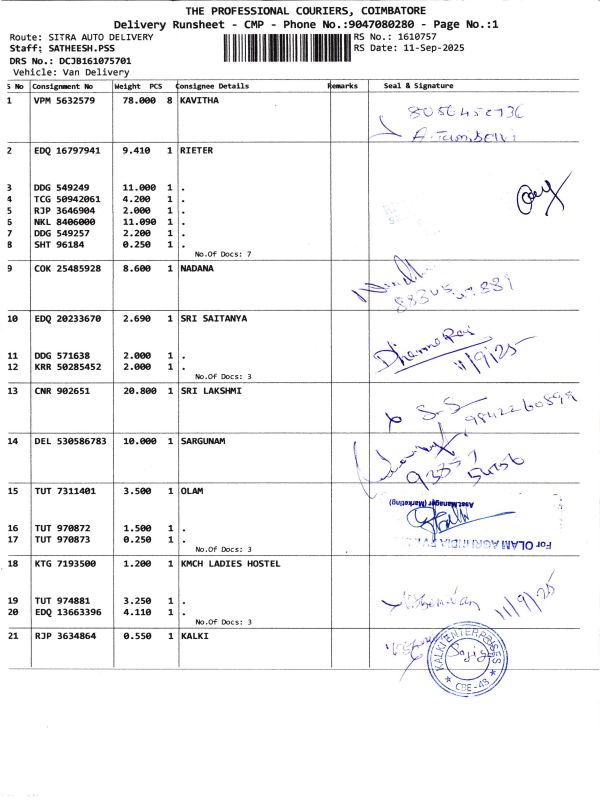 THE PROFESSIONAL COURIERS, COIMBATORE
Delivery Runsheet - CMP - Phone No.:9047080280 - Page No.:1
Route: SITRA AUTO DELIVERY
RS No.: 1610757
Staff: SATHEESH.PSS
RS Date: 11-Sep-2025
DRS No.: DCJB161075701
Vehicle: Van Delivery
S No Consignment No Weight PCS Consignee Details Remarks Seal & Signature
1 VPM 5632579 78.000 8 KAVITHA
2 EDQ 16797941 9.410 1 RIETER
3 DDG 549249 11.000 1 .
4 TCG 50942061 4.200 1 .
5 RJP 3646904 2.000 1 .
6 NKL 8406000 11.090 1 .
7 DDG 549257 2.200 1 .
8 SHT 96184 0.250 1 .
No.Of Docs: 7
9 COK 25485928 8.600 1 NADANA
10 EDQ 20233670 2.690 1 SRI SAITANYA
11 DDG 571638 2.000 1 .
12 KRR 50285452 2.000 1 .
No.Of Docs: 3
11/9/25
13 CNR 902651 20.800 1 SRI LAKSHMI
S.S
9842260899
14 DEL 530586783 10.000 1 SARGUNAM
15 TUT 7311401 3.500 1 OLAM
Asst.Manager (Marketing)
16 TUT 970872 1.500 1 .
17 TUT 970873 0.250 1 .
No.Of Docs: 3
For OLAM AGRI INDIA
18 KTG 7193500 1.200 1 KMCH LADIES HOSTEL
19 TUT 974881 3.250 1 .
20 EDQ 13663396 4.110 1 .
No.Of Docs: 3
11/9/25
21 RJP 3634864 0.550 1 KALKI
KALKI ENTERPRISES
CBE-43